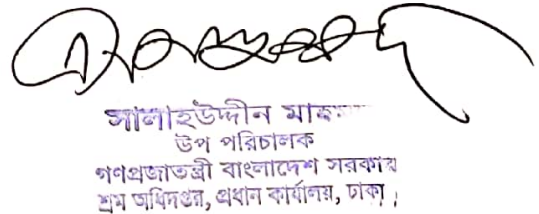 সালাহউদ্দীন
উপ পরিচালক
গণপ্রজাতন্ত্রী বাংলাদেশ সরকার
শ্রম অধিদপ্তর, প্রধান কার্যালয়, ঢাকা,